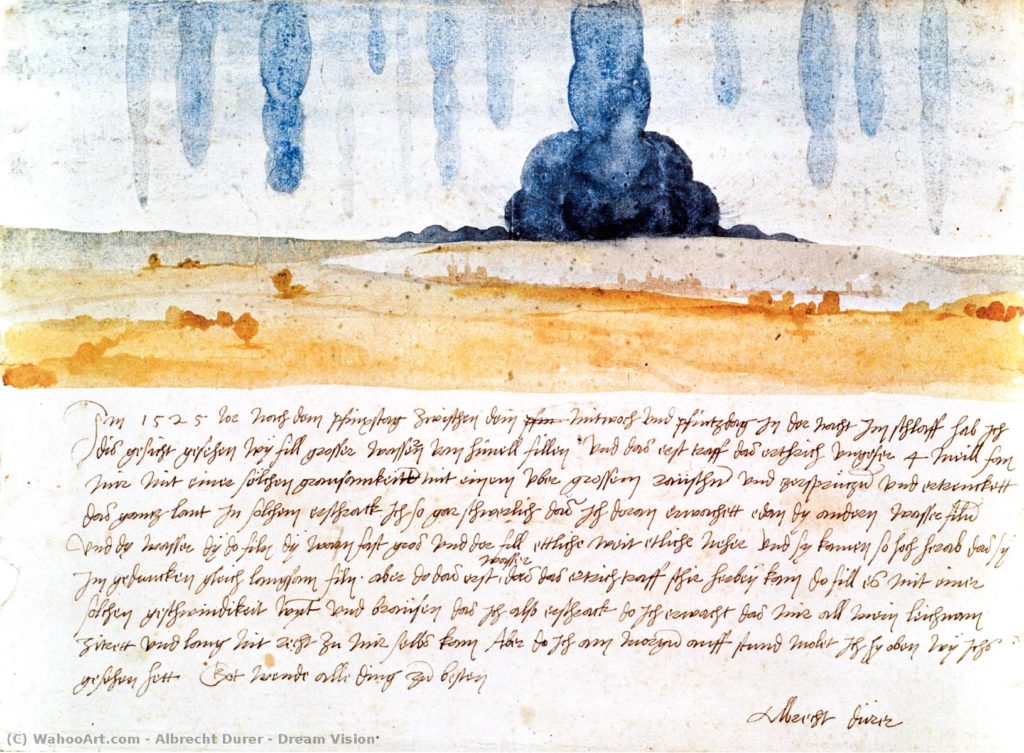 Im 1525 Jor nach dem pfinxstag zwischen dem Mitwoch und pfintzdag in der nacht im schlaff hab ich
dis gesicht gesehen wy fill grosser wassern vom himell fillen Und das erst traff das erthrich ungefer 4 meill fan
mir mit einer solchen grausamkeitt mit einem uber grossem raüschn und zersprützn und ertrenckett
das gantz lant In solchem erschrack ich so gar schwerlich das ich doran erwachett edan dy andern wasser filn
Und dy wasser dy do filn dy warn fast gros und der fill ettliche weit etliche neher und sy kamen so hoch herab das sy
im geduncken gleich langsam filn. aber do das erst wasser das das ertrich traff schir herbey kam do fill es mit einer
solchen geschwindikeit wynt und braüsen das ich also erschrack do ich erwacht das mir all mein leichnam
zitrett und lang nit recht zu mir selbs kam Aber do ich am morgn auff stund molet ich hy oben wy ichs
gesehen hett. Got wende alle ding zu besten
Albrecht dürer
(C) WahooArt.com - Albrecht Durer - Dream Vision